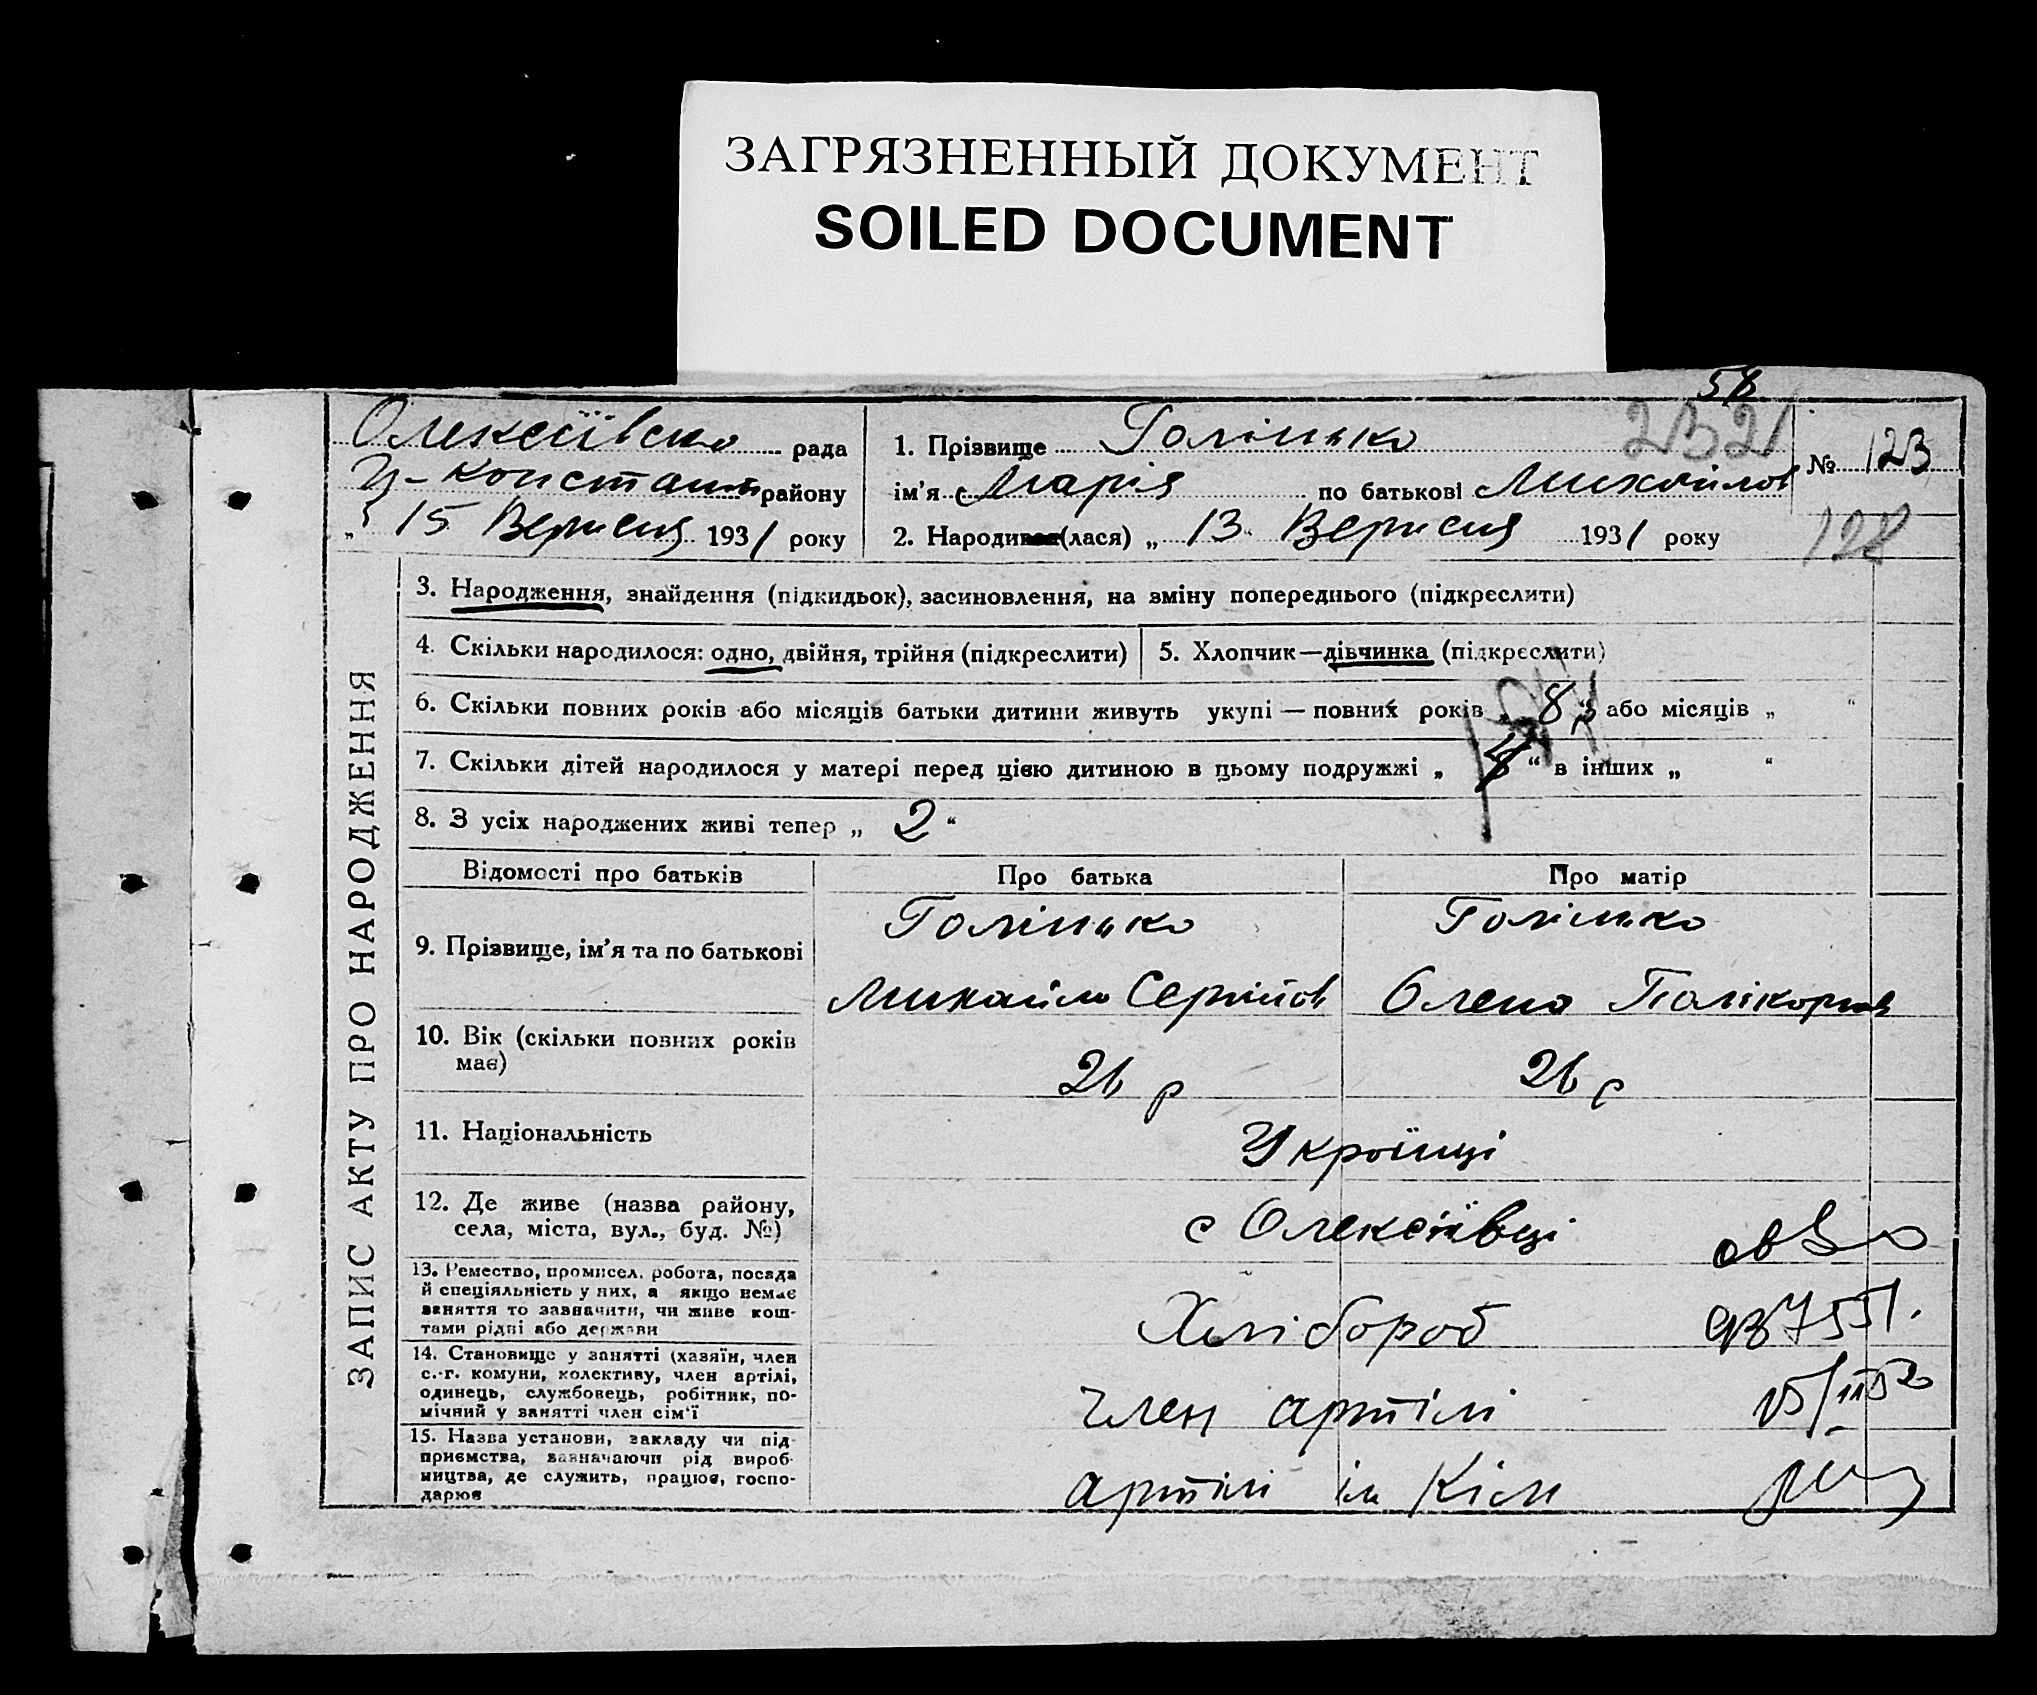 ЗАГРЯЗНЕННЫЙ ДОКУМЕНТ
SOILED DOCUMENT
58
Олексіївсько рада
Н-Констант району
„ 15 Вересня 1931 року
1. Прізвище Голінько
232
№ 123
ім’я Марія по батькові Михайлов
2. Народився(лася) „ 13 Вересня 1931 року
128
ЗАПИС АКТУ ПРО НАРОДЖЕННЯ
3. Народження, знайдення (підкидьок), засиновлення, на зміну попереднього (підкреслити)
4. Скільки народилося: одно, двійня, трійня (підкреслити)
5. Хлопчик—дівчинка (підкреслити)
6. Скільки повних років або місяців батьки дитини живуть укупі — повних років „ 8 “ або місяців „ “
7. Скільки дітей народилося у матері перед цією дитиною в цьому подружжі „ “ в інших „ “
8. З усіх народжених живі тепер „ 2 “
Відомості про батьків Про батька Про матір
9. Прізвище, ім’я та по батькові
Голінько Голінько
Михайло Сергійов Олена Полікарпов
10. Вік (скільки повних років
має)
26 р 26 р
11. Національність
Українці
12. Де живе (назва району,
села, міста, вул., буд. №)
с Олексіївці
13. Ремество, промисел. робота, посада
й спеціяльність у них, а якщо немає
заняття то зазначити, чи живе кош-
тами рідні або держави
Хлібороб
14. Становище у занятті (хазяїн, член
с.-г. комуни, колективу, член артілі,
одинець, службовець, робітник, по-
мічний у занятті член сім’ї
член артілі
15. Назва установи, закладу чи під-
приємства, зазначаючи рід вироб-
ництва, де служить, працює, госпо-
дарює
артілі ім